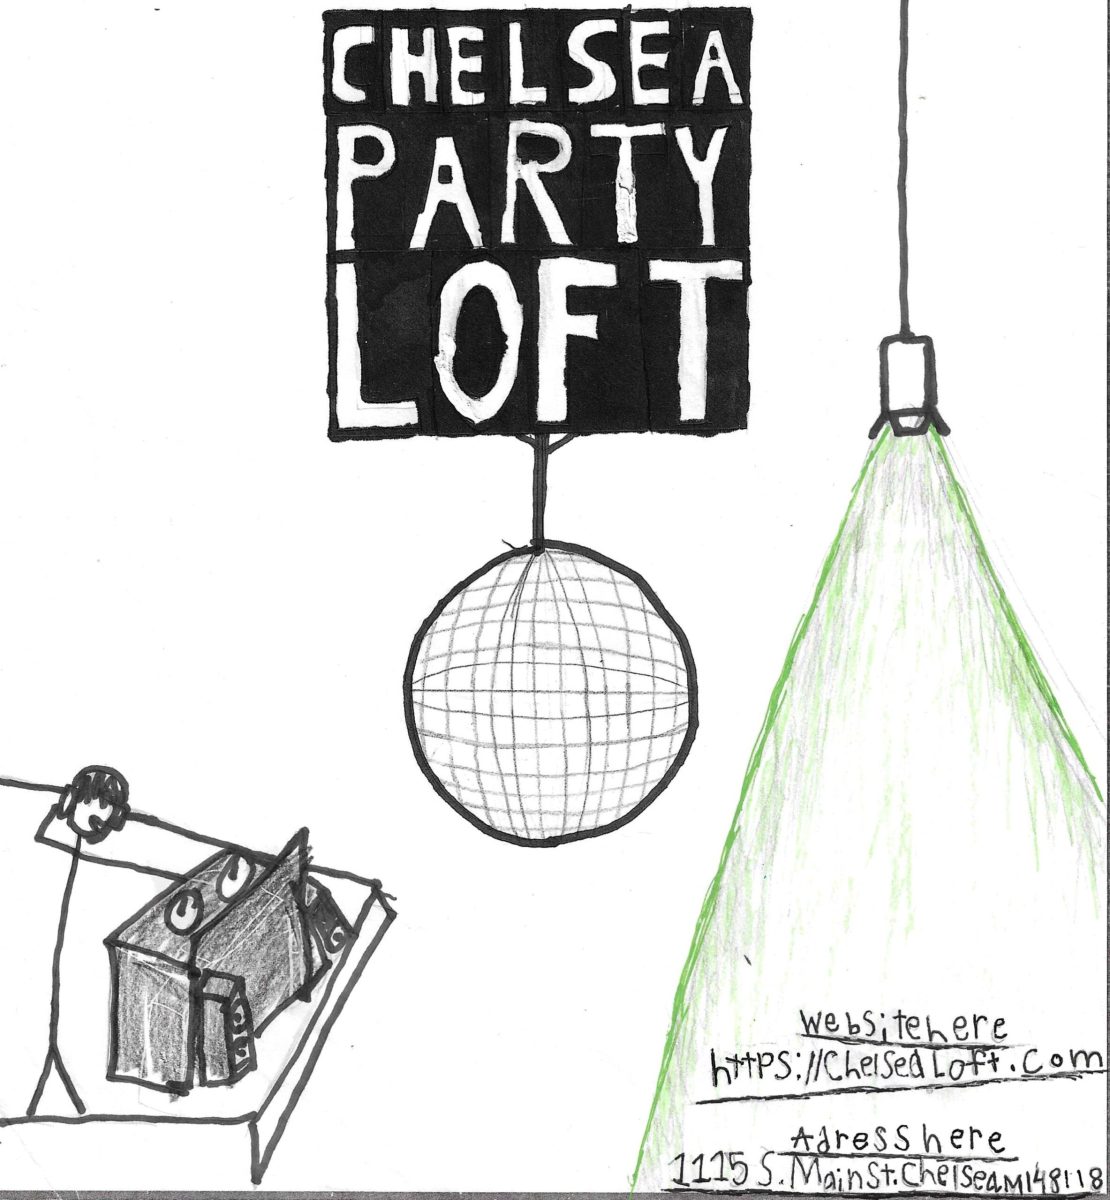 CHELSEA
PARTY
LOFT
Website here
https://ChelseaLoft.com
Adress here
1115 S. Main St. Chelsea MI 48118